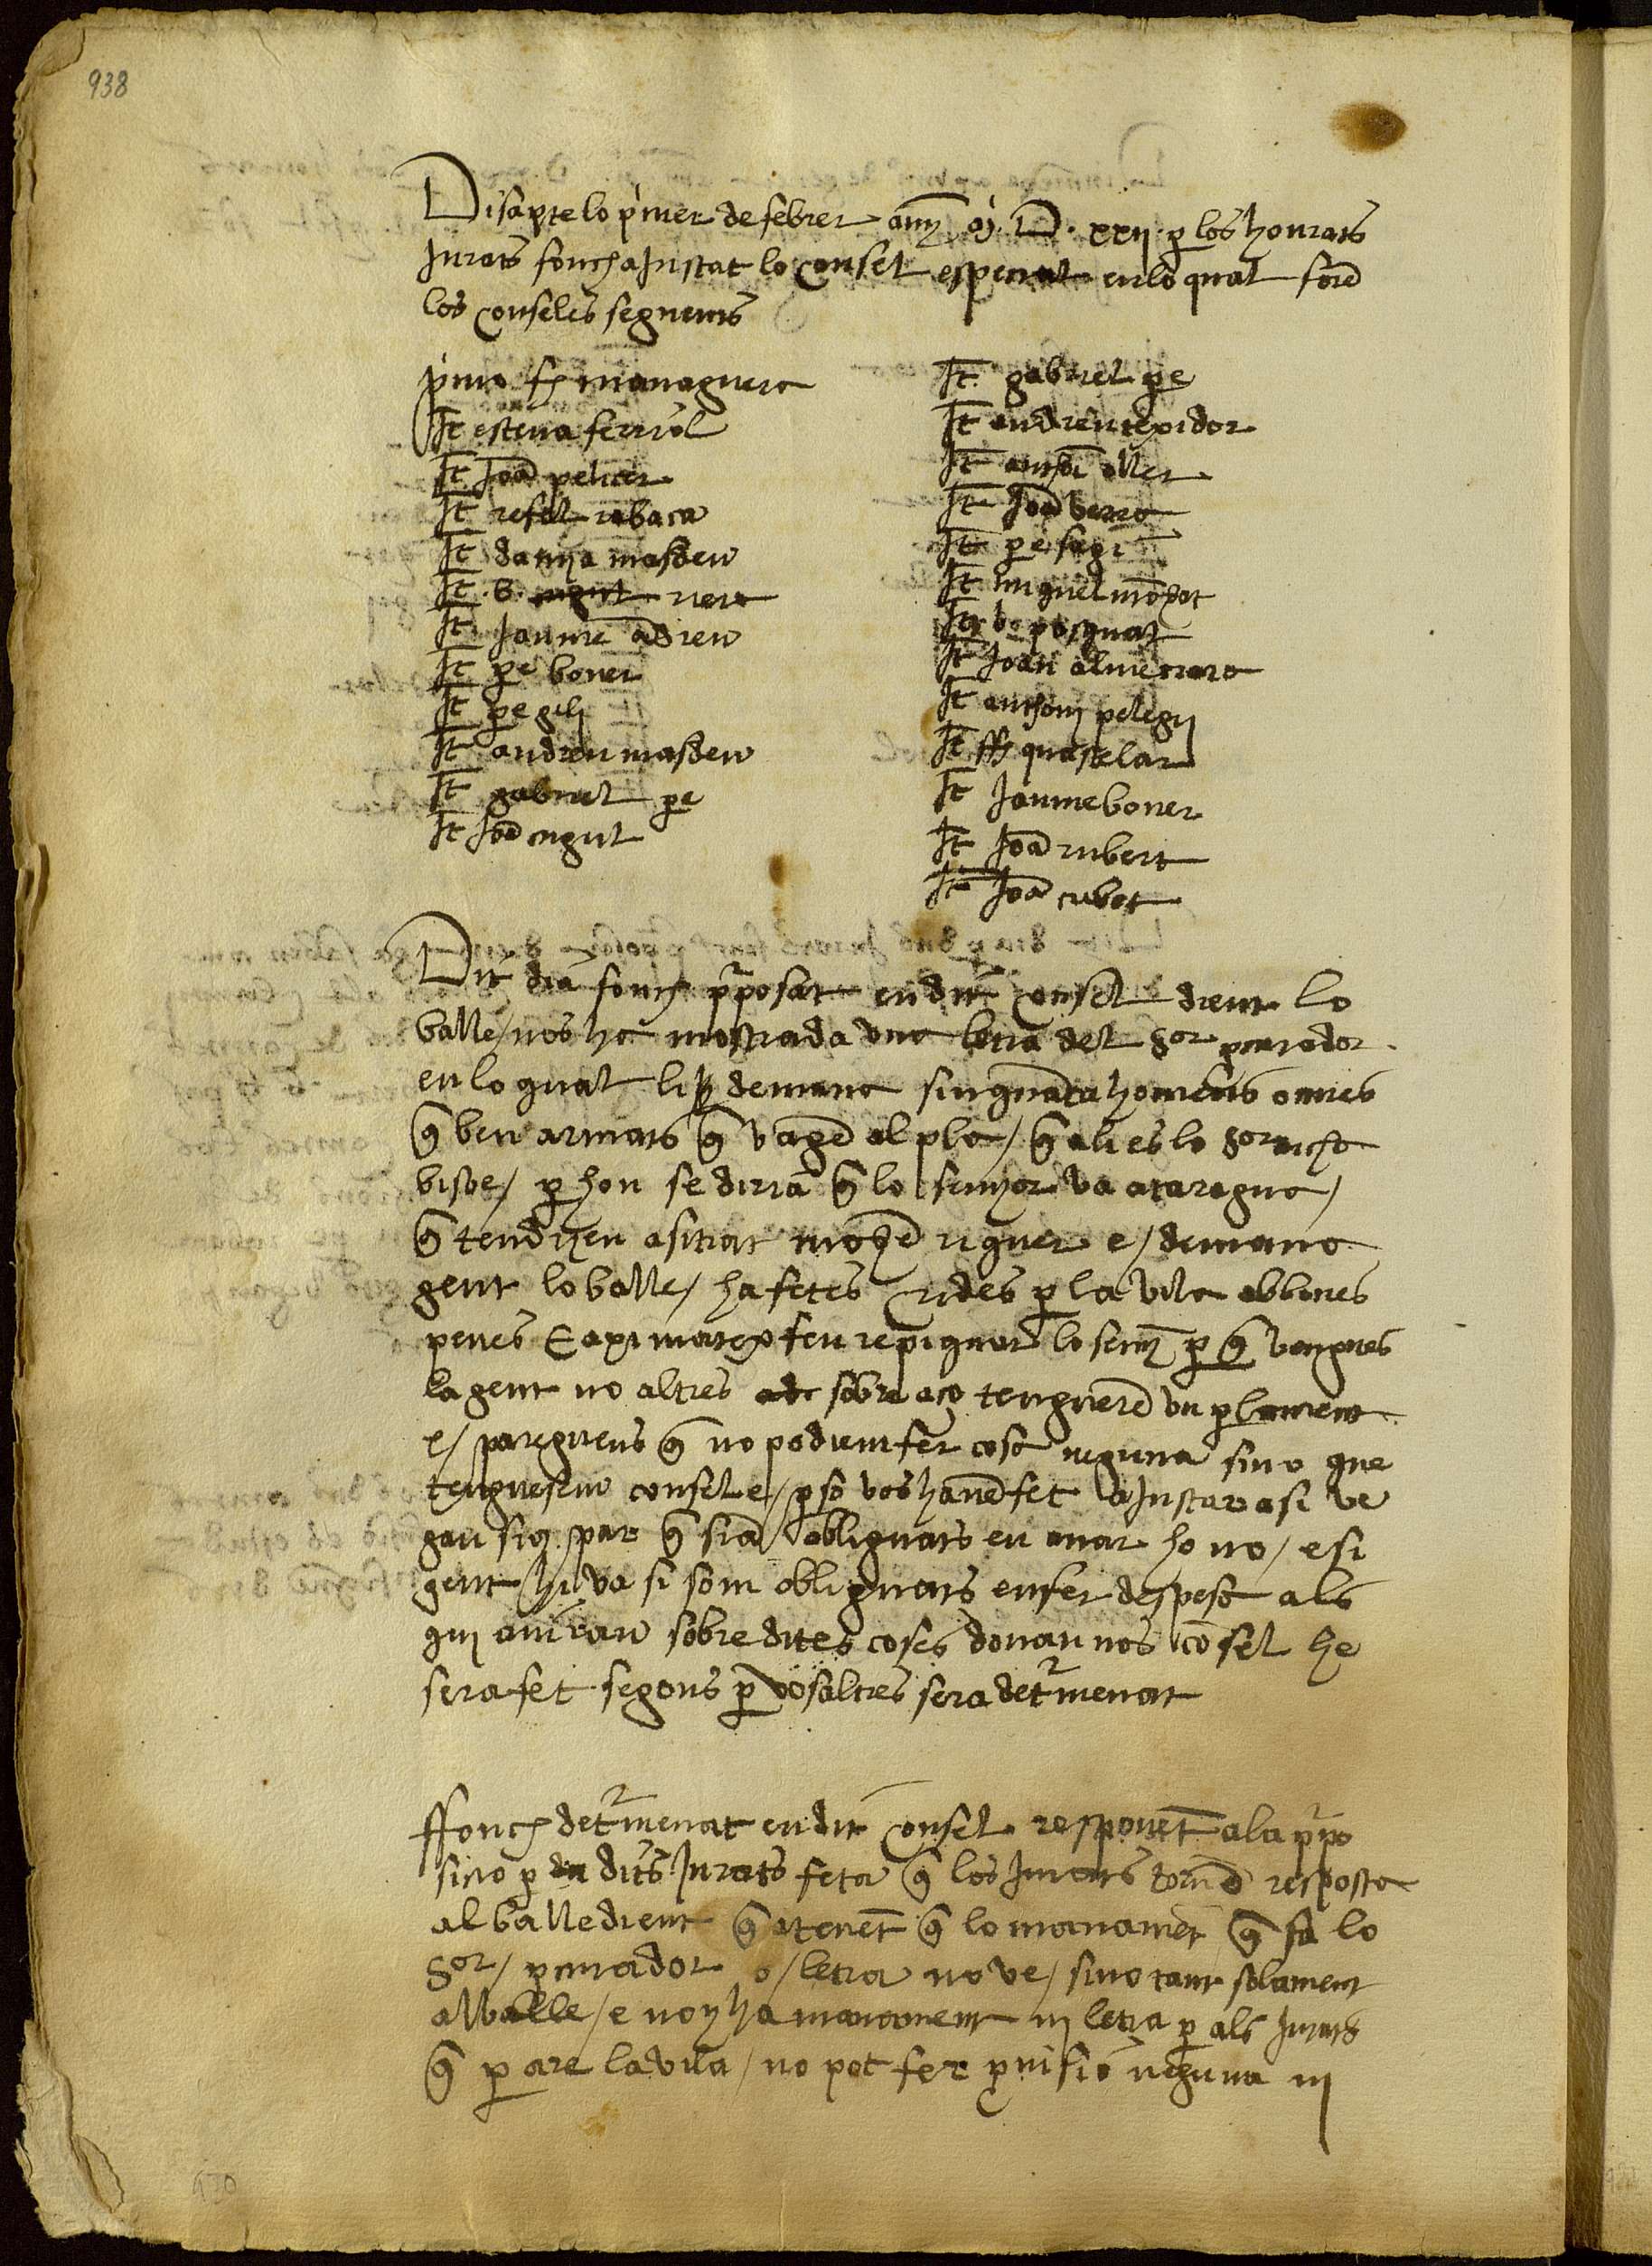 938
Disapte lo p'mer de febrer any M. D. xxij. p los honrats
Jurats fonch aJustat lo consel especial en lo qual foren
los conseles seguents
p'mo fr managuere
It esteva ferriol
It Joa peliter
It refel rabaca
It damia masdeu
It .b. vere
It Jaume adreu
It pe boner
It pe gili
It andreu masdeu
It gabriel pe
It Joa cugul
It gabriel pe
It andreu texidor
It anthoi oller
It Joa verro
It pe sagi
It miquel
It b pasqual
It Joan almenara
It anthoni pelegri
It ff quastelar
It Jaume boner
It Joa rubert
It Joa cubot
Dit dia fonch pposat en dit consel dient lo
balle / nos he mostrada una letra del sor pcurador
en lo qual li demana sinquata homens omes
q ben armats q vagen al pla / q ali es lo sor archa
bisbe / p hon se diria q lo senyor va a taragona /
q tendrien asitiat e / demana
gent lo balle / ha fetes crides p la vila ab bones
penes E axi matex feu repiquar lo seny p q vengues
la gent no altres sobre aço tengueren un plament
e / pareguens q no podiem fer cosa neguna sino que
tenguesem consel e / p so vos havem fet aJustar asi ve
gau sius par q siam obliguats en anar ho no / e si
gent hi va si som obliguats en fer despesa als
qui aniran sobre dites coses donau nos cosel he
sera fet segons p vosaltres sera detmenat
ffonch detmenat en dit consel responet a la ppo
sicio p dits Jurats feta q los Jurats tornen resposta
al balle dient q atenet q lo manamet q fa lo
sor / pcurador o / letra no ve / sino tant solament
al balle / e noy ha manament ni letra p als Jurats
q p are la vila / no pot fer pvisio neguna ni